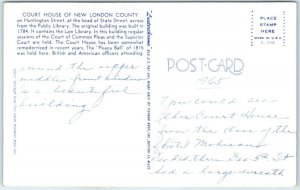 COURT HOUSE OF NEW LONDON COUNTY
on Huntington Street, at the head of State Street, across
from the Public Library. The original building was built in
1784. It contains the Law Library. In this building regular
sessions of the Court of Common Pleas and the Superior
Court are held. The Court House has been somewhat
remodernized in the recent past. The "Peace Ball" of 1815
was held here, British and American officers attending.
around the upper
middle front windows
is a beautiful
building
POST CARD
1965
You could see
this Court House
from the door of the
Hotel Mohican
Dec 5th It
had a large wreath
PLACE
STAMP
HERE